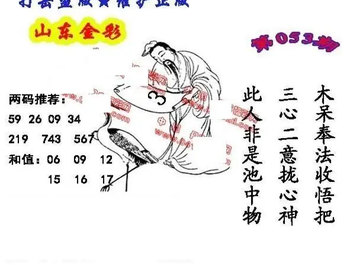 打击盗版 维护正版
山东金彩
第053期
两码推荐：
59 26 09 34
219 743 567
和值：06 09 12
15 16 17
3
木呆奉法收悟把
三心二意拢心神
此人非是池中物